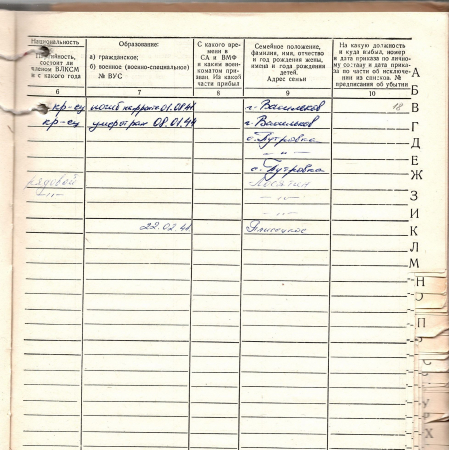 Национальность
Партийность, состоит ли членом ВЛКСМ и с какого года
Образование:
а) гражданское;
б) военное (военно-специальное)
№ ВУС
С какого времени в СА и ВМФ и каким военкоматом призван. Из какой части прибыл
Семейное положение, фамилия, имя, отчество и год рождения жены, имена и года рождения детей.
Адрес семьи
На какую должность и куда выбыл, номер и дата приказа по личному составу и дата приказа по части об исключении из списков. № предписания об убытии
6 7 8 9 10
кр-ец погиб на фронте 01.08.41 г. Васильков 18
кр-ец умер от ран 08.01.44 г. Васильков
с. Путровка
— " —
с. Путровка
рядовой
— " —
— " —
— " —
22.02.41
А
Б
В
Г
Д
Е
Ж
З
И
К
Л
М
Н
О
П
С
У
Х